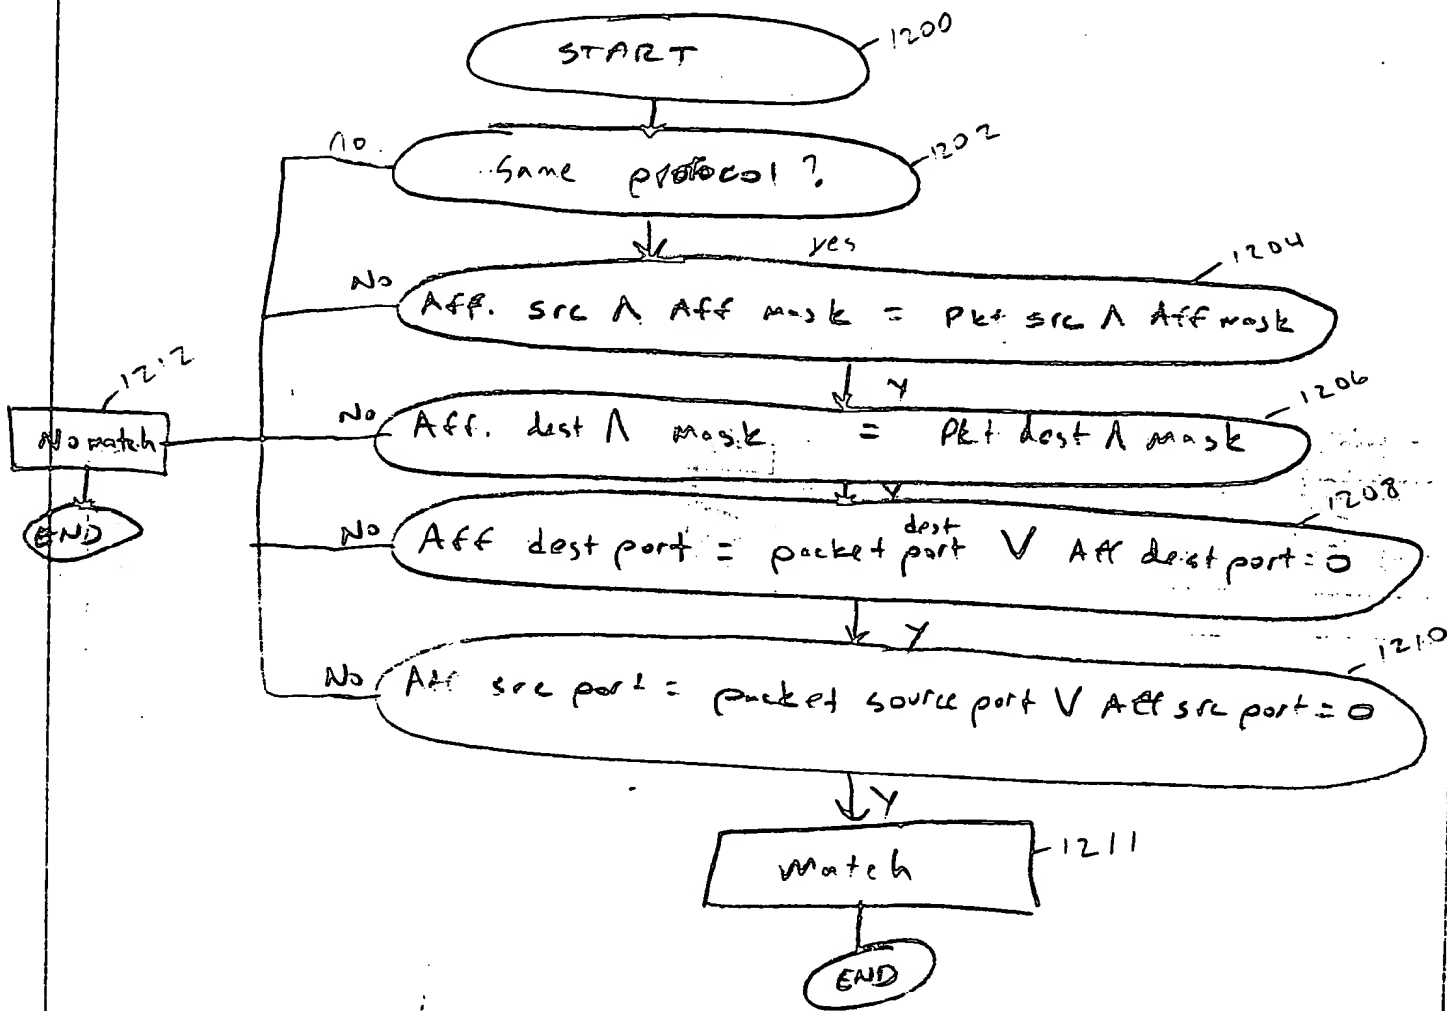 START
1200
no
Same protocol?
1202
yes
1204
No
Aff. src Λ Aff mask = Pkt src Λ Aff mask
1212
Y
1206
No match
No
Aff. dest Λ mask = Pkt dest Λ mask
Y
1208
END
No
Aff dest port = packet dest port V Aff dest port = 0
Y
1210
No
Aff src port = packet source port V Aff src port = 0
Y
Match
1211
END